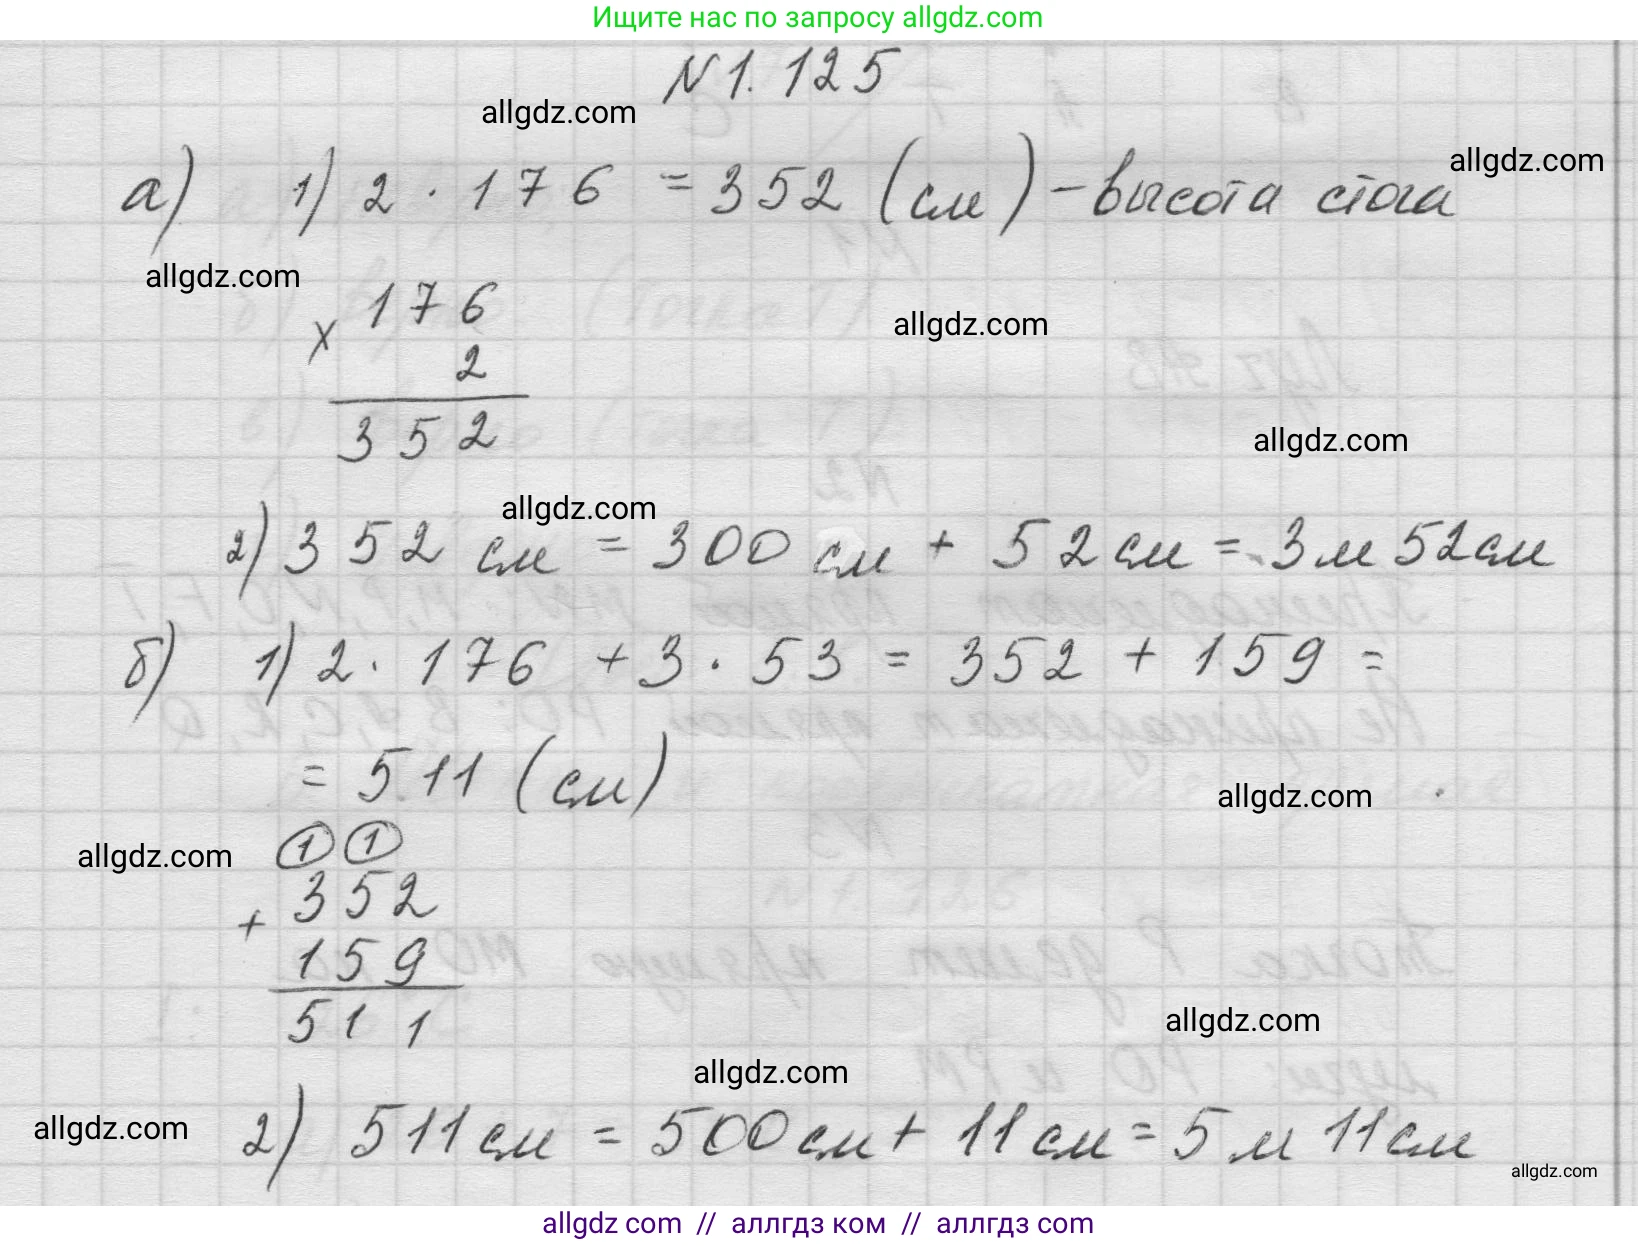 Ищите нас по запросу allgdz.com
N1.125
allgdz.com
allgdz.com
а) 1) 2 · 176 = 352 (см) - высота стога
allgdz.com
176
allgdz.com
×
2
352
allgdz.com
allgdz.com
2) 352 см = 300 см + 52 см = 3 м 52 см
б) 1) 2 · 176 + 3 · 53 = 352 + 159 =
= 511 (см)
allgdz.com
1 1
allgdz.com
352
+
159
511
allgdz.com
allgdz.com
allgdz.com
2) 511 см = 500 см + 11 см = 5 м 11 см
allgdz.com
allgdz com // аллгдз ком // аллгдз com